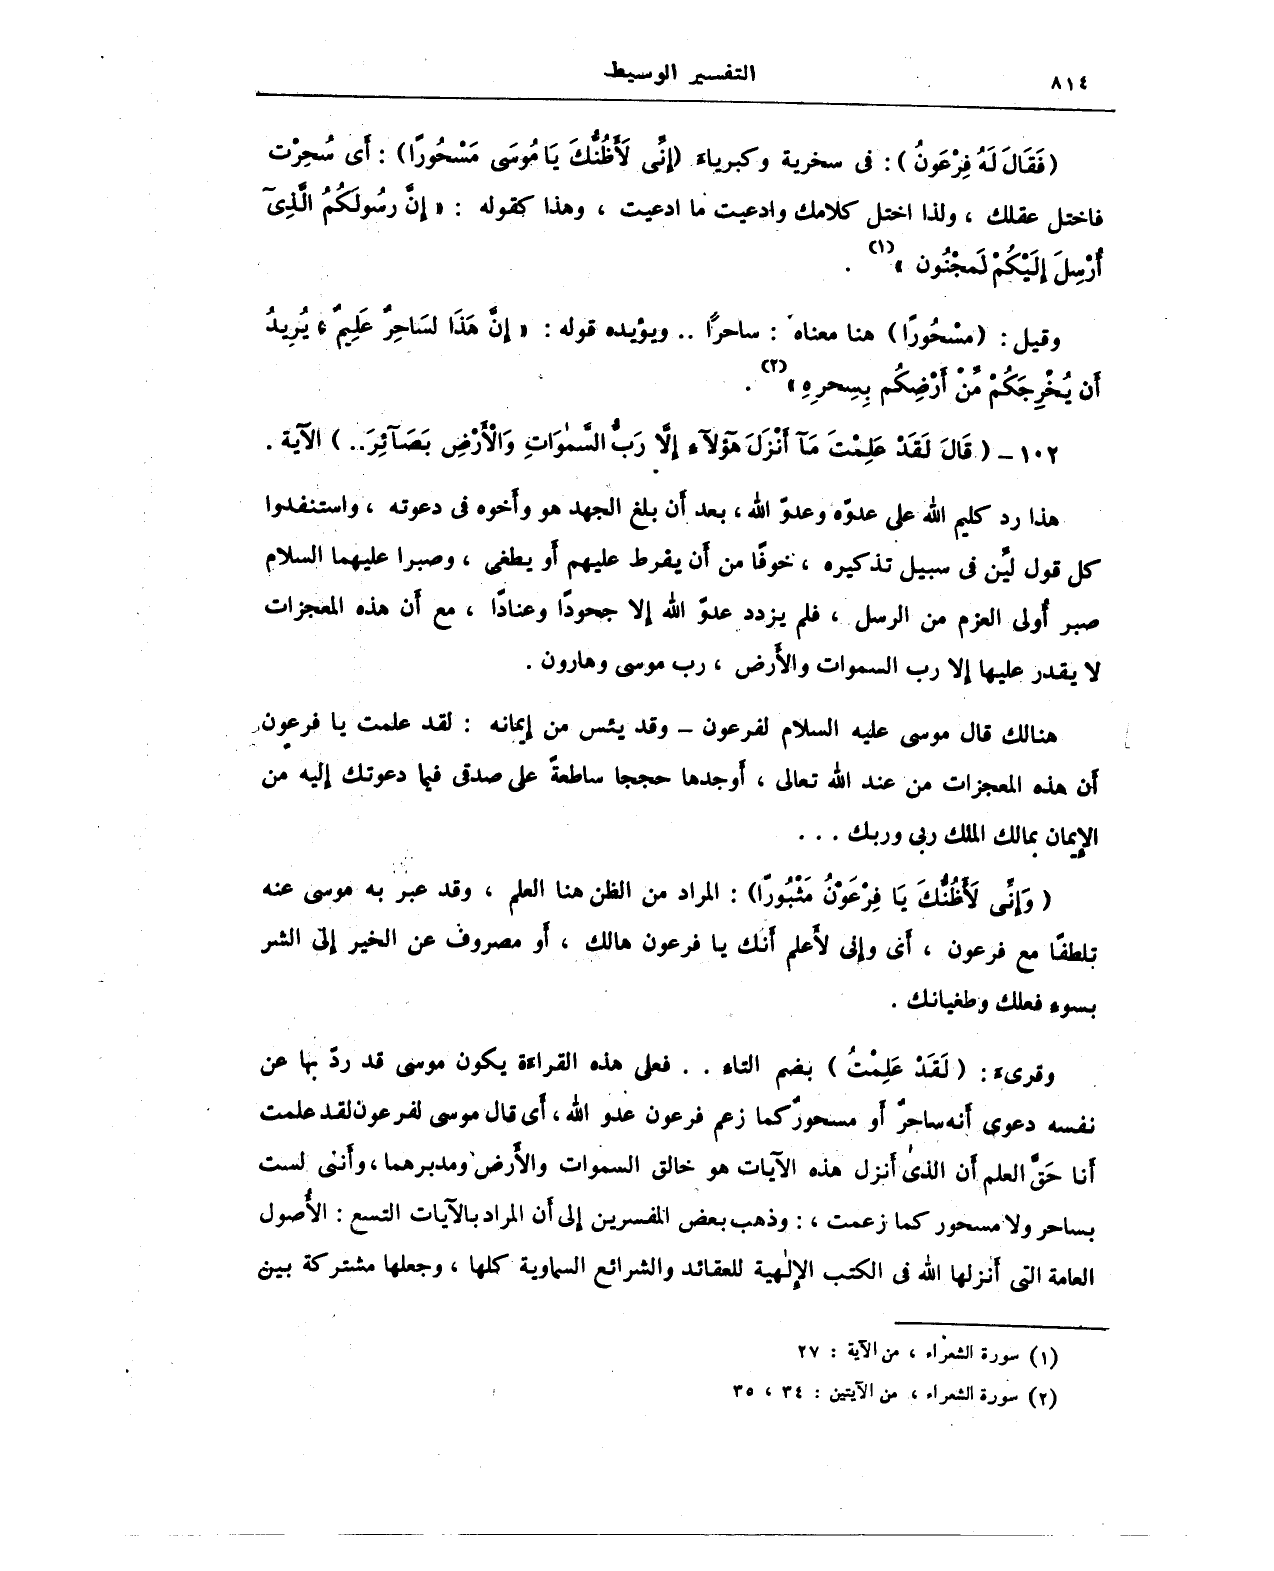 ٨١٤
التفسير الوسيط
(فَقَالَ لَهُ فِرْعَوْنُ) : فى سخرية وكبرياء (إِنِّى لَأَظُنُّكَ يَا مُوسَى مَسْحُورًا) : أَى سُحِرْت
فاختل عقلك ، ولذا اختل كلامك وادعيت ما ادعيت ، وهذا كقوله : « إِنَّ رَسُولَكُمُ الَّذِىٓ
أُرْسِلَ إِلَيْكُمْ لَمجْنُون »(١) .
وقيل : (مسْحُورًا) هنا معناه : ساحرًا .. ويؤيده قوله : « إِنَّ هَذَا لسَاحِرٌ عَلِيمٌ ، يُرِيدُ
أَن يُخْرِجَكُمْ مِّنْ أَرْضِكُم بِسِحرِهِ »(٢) .
١٠٢ – (قَالَ لَقَدْ عَلِمْتَ مَآ أَنْزَلَ هَٓؤُلآءِ إِلَّا رَبُّ السَّمٰوَاتِ وَالْأَرْضِ بَصَآئِرَ..) الآية .
هذا رد كليم الله على عدوّه وعدوّ الله ، بعد أن بلغ الجهد هو وأَخوه فى دعوته ، واستنفدوا
كل قول ليِّن فى سبيل تذكيره ، خوفًا من أَن يفرط عليهم أَو يطغى ، وصبرا عليهما السلام
صبر أُولى العزم من الرسل ، فلم يزدد عدوّ الله إلا جحودًا وعنادًا ، مع أَن هذه المعجزات
لا يقدر عليها إلا رب السموات والأَرض ، رب موسى وهارون .
هنالك قال موسى عليه السلام لفرعون – وقد يئس من إيمانه : لقد علمت يا فرعون
أَن هذه المعجزات من عند الله تعالى ، أَوجدها حججا ساطعةً على صدقى فيما دعوتك إليه من
الإِيمان بمالك الملك ربى وربك . . .
(وَإِنِّى لَأَظُنُّكَ يَا فِرْعَوْنُ مَثْبُورًا) : المراد من الظن هنا العلم ، وقد عبر به موسى عنه
تلطفًا مع فرعون ، أَى وإنى لأَعلم أَنك يا فرعون هالك ، أَو مصروف عن الخير إلى الشر
بسوء فعلك وطغيانك .
وقرىء : (لَقَدْ عَلِمْتُ) بضم التاء . . فعلى هذه القراءة يكون موسى قد ردّ بها عن
نفسه دعوى أَنه ساحرٌ أَو مسحورٌ كما زعم فرعون عدو الله ، أَى قال موسى لفرعون لقد علمت
أَنا حَقَّ العلم أَن الذى أَنزل هذه الآيات هو خالق السموات والأَرض ومدبرهما ، وأَننى لست
بساحر ولا مسحور كما زعمت ، : وذهب بعض المفسرين إلى أَن المراد بالآيات التسع : الأُصول
العامة التى أَنزلها الله فى الكتب الإِلٰهية للعقائد والشرائع السماوية كلها ، وجعلها مشتركة بين
(١) سورة الشعراء ، من الآية : ٢٧
(٢) سورة الشعراء ، من الآيتين : ٣٤ ، ٣٥